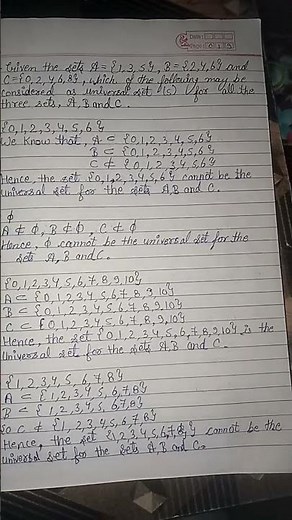 Given the sets A = {1, 3, 5}, B = {2, 4, 6} and
C = {0, 2, 4, 6, 8}, which of the following may be
considered as universal set (s) for all the
three sets, A, B and C.
{0, 1, 2, 3, 4, 5, 6}
We know that, A ⊂ {0, 1, 2, 3, 4, 5, 6}
B ⊂ {0, 1, 2, 3, 4, 5, 6}
C ⊄ {0, 1, 2, 3, 4, 5, 6}
Hence, the set {0, 1, 2, 3, 4, 5, 6} cannot be the
universal set for the sets A, B and C.
ϕ
A ⊄ ϕ, B ⊄ ϕ, C ⊄ ϕ
Hence, ϕ cannot be the universal set for the
sets A, B and C.
{0, 1, 2, 3, 4, 5, 6, 7, 8, 9, 10}
A ⊂ {0, 1, 2, 3, 4, 5, 6, 7, 8, 9, 10}
B ⊂ {0, 1, 2, 3, 4, 5, 6, 7, 8, 9, 10}
C ⊂ {0, 1, 2, 3, 4, 5, 6, 7, 8, 9, 10}
Hence, the set {0, 1, 2, 3, 4, 5, 6, 7, 8, 9, 10} is the
universal set for the sets A, B and C.
{1, 2, 3, 4, 5, 6, 7, 8}
A ⊂ {1, 2, 3, 4, 5, 6, 7, 8}
B ⊂ {1, 2, 3, 4, 5, 6, 7, 8}
So C ⊄ {1, 2, 3, 4, 5, 6, 7, 8}
Hence, the set {1, 2, 3, 4, 5, 6, 7, 8} cannot be the
universal set for the sets A, B and C.